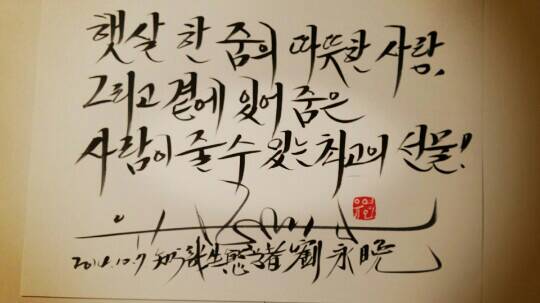 햇살 한 줌의 따뜻한 사람,
그리고 곁에 있어 줌은
사람이 줄 수 있는 최고의 선물!
劉永晄